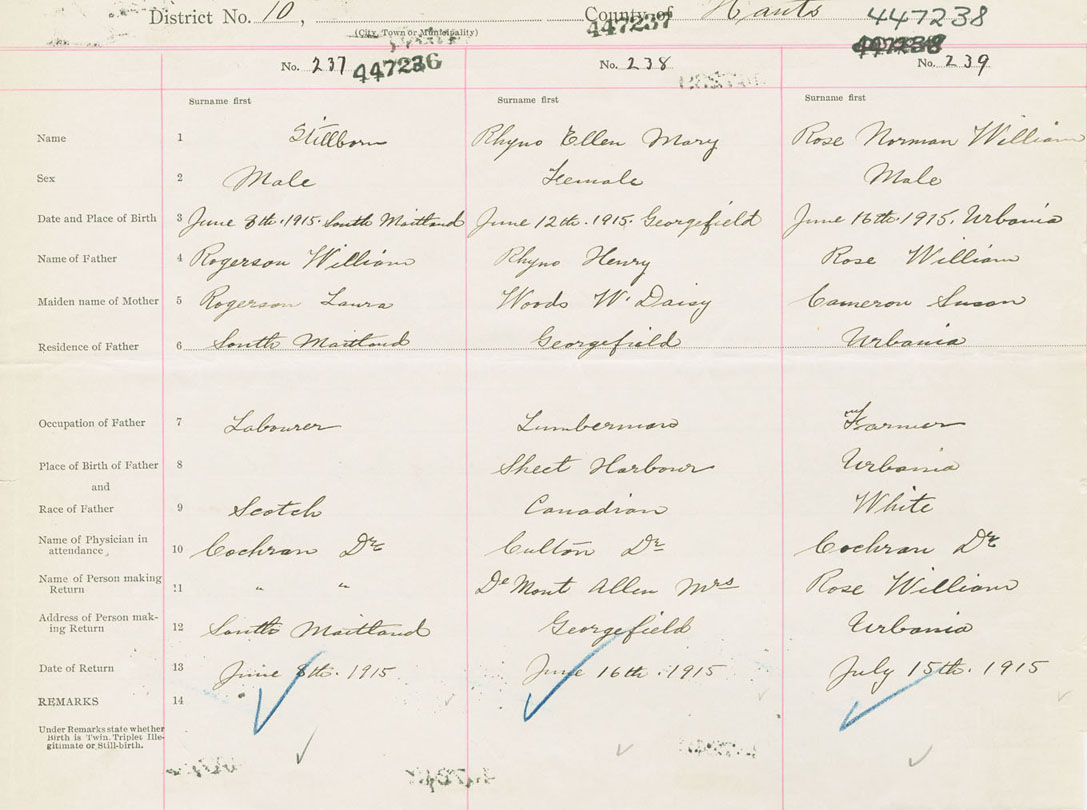 District No. 10, County of Hants 447238
(City, Town or Municipality) 447237
No. 237 447236 No. 238 No. 239
Surname first Surname first Surname first
Name 1 Stillborn Rhyno Ellen Mary Rose Norman William
Sex 2 Male Female Male
Date and Place of Birth 3 June 8th. 1915. South Maitland June 12th. 1915. Georgefield June 16th. 1915. Urbania
Name of Father 4 Rogerson William Rhyno Henry Rose William
Maiden name of Mother 5 Rogerson Laura Woods W. Daisy Cameron Susan
Residence of Father 6 South Maitland Georgefield Urbania
Occupation of Father 7 Labourer Lumberman Farmer
Place of Birth of Father 8 Sheet Harbour Urbania
and
Race of Father 9 Scotch Canadian White
Name of Physician in
attendance, 10 Cochran Dr. Culton Dr. Cochran Dr.
Name of Person making
Return 11 " " De Mont Allen Mrs Rose William
Address of Person mak-
ing Return 12 South Maitland Georgefield Urbania
Date of Return 13 June 8th. 1915 June 16th. 1915 July 15th. 1915
REMARKS 14
Under Remarks state whether
Birth is Twin. Triplet Ille-
gitimate or Still-birth.